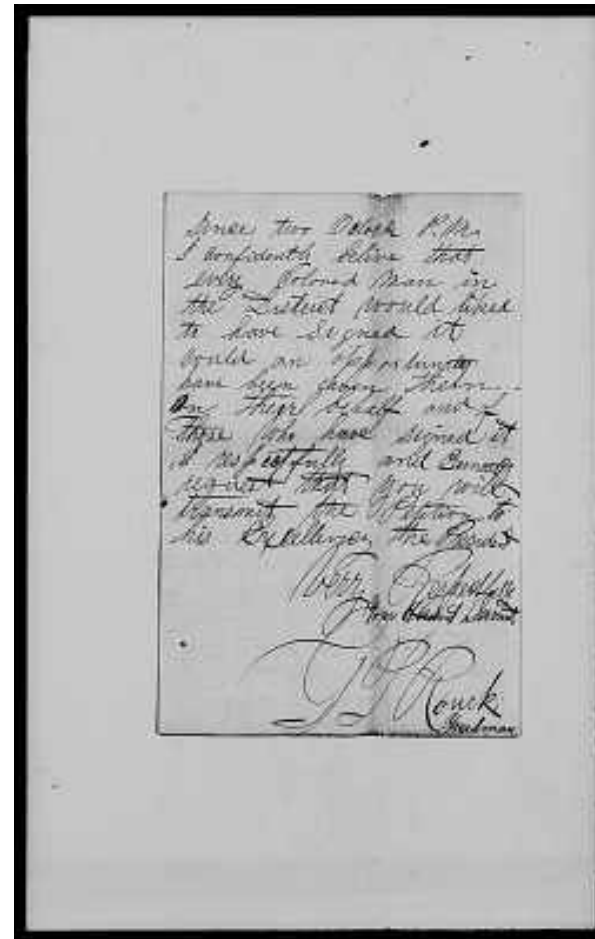 since two Oclock P.M.
I confidently belive that
every Colored Man in
the District would liked
to have signed it
could an opportunity
have been given them
on their behalf and of
those who have signed it
I respectfully and
request that you will
transmit the Petition to
his Excellency the
Very Respectfully
Your Obedient Servant
T P Rouck
Freedman